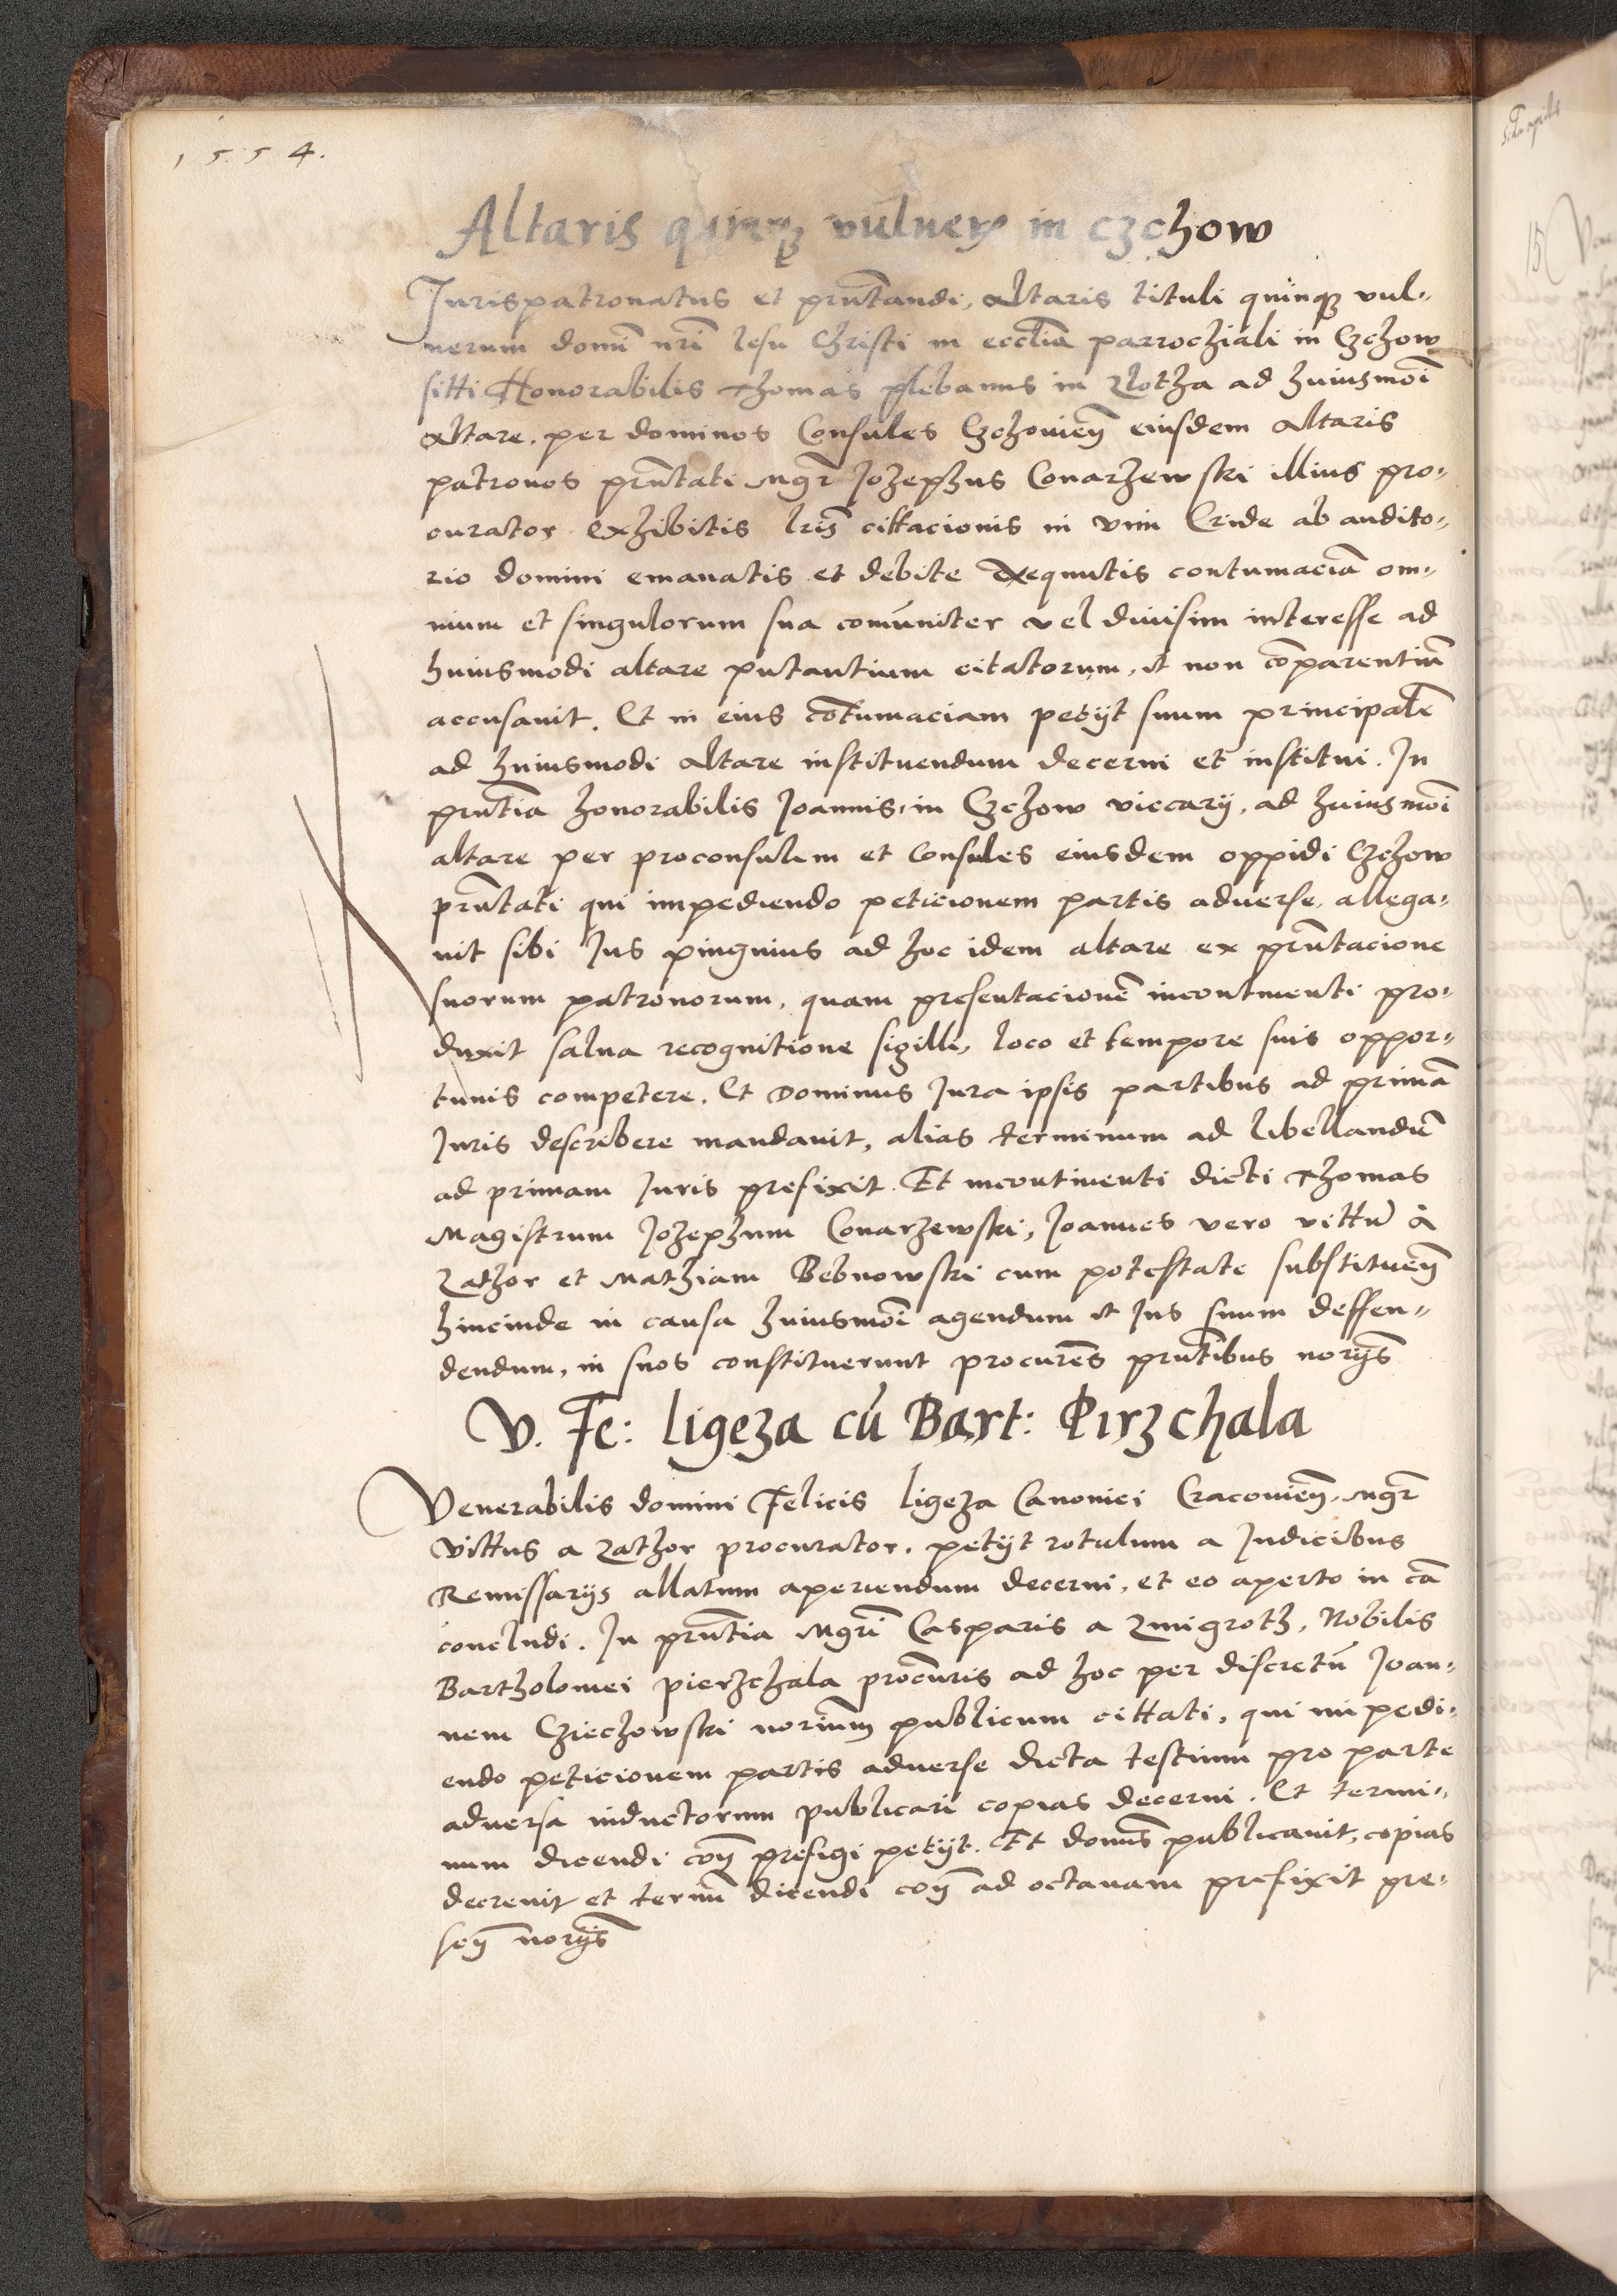 1554.
Altaris quinqꝫ vulneꝝ in czchow
Jurispatronatus et pnt̃andi, Altaris tituli quinqꝫ vul-
nerum domi nri Iesu Christi in eccĺia parrochiali in Czchow
sitti Honorabilis Thomas plebanus in Zlotha ad huiusmoi
Altare. per dominos Consules Czchovień eiusdem Altaris
patronos prñtati Mgr̃ Jozephus Conarzewski illius pro-
curator exhibitis lris̃ cittacionis in vim Cride ab audito-
rio domini emanatis et debite Exequutis contumaciã om-
nium et singulorum sua comuniter vel divisim interesse ad
huiusmodi altare putantium citatorum, et non cõparentiũ
accusavit. Et in eius cõtumaciam petijt suum principalẽ
ad huiusmodi Altare instituendum decerni et institui. In
prñtia honorabilis Joannis, in Czchow viccarij, ad huiusmoi
altare per proconsulem et Consules eiusdem oppidi Czchow
prñtati qui impediendo peticionem partis adverse, allega-
uit sibi Jus pinguius ad hoc idem altare ex prñtacione
suorum patronorum, quam presentacionẽ incontinenti pro-
duxit salua recognitione sigilli, loco et tempore suis oppor-
tunis competere. Et Dominus Jura ipsis partibus ad primã
Juris describere mandauit, alias terminum ad libellandũ
ad primam Juris prefixit. Et incontinenti dicti Thomas
Magistrum Jozephum Conarzewski, Joannes vero vittũ à
Zathor et Mathiam Bebnowski cum potestate substitueñ
hincinde in causa huiusmoi agendum et Jus suum deffen-
dendum, in suos constituerunt procurẽs prñtibus norijs̃
V. Fe: ligeza cũ Bart: Pirzchala
Venerabilis domini Felicis ligeza Canonici Cracovień, Mgr̃
Vittus a Zathor procurator, petijt rotulum a Judicibus
Remissarijs allatum aperiendum decerni, et eo aperto in cã
concludi. In prñtia Mgrĩ Casparis a Zmigroth, Nobilis
Bartholomei pierzchala procuris̃ ad hoc per discretũ Joan-
nem Cziechowski norium̃ publicum cittati, qui impedi-
endo peticionem partis adverse dicta testium pro parte
adversa inductorum publicari copias decerni. Et termi-
num dicendi coñ prefigi petijt. Et domus̃ publicauit, copias
decrevit et termũ dicendi coñ ad octauam prefixit pre-
señ norijs̃